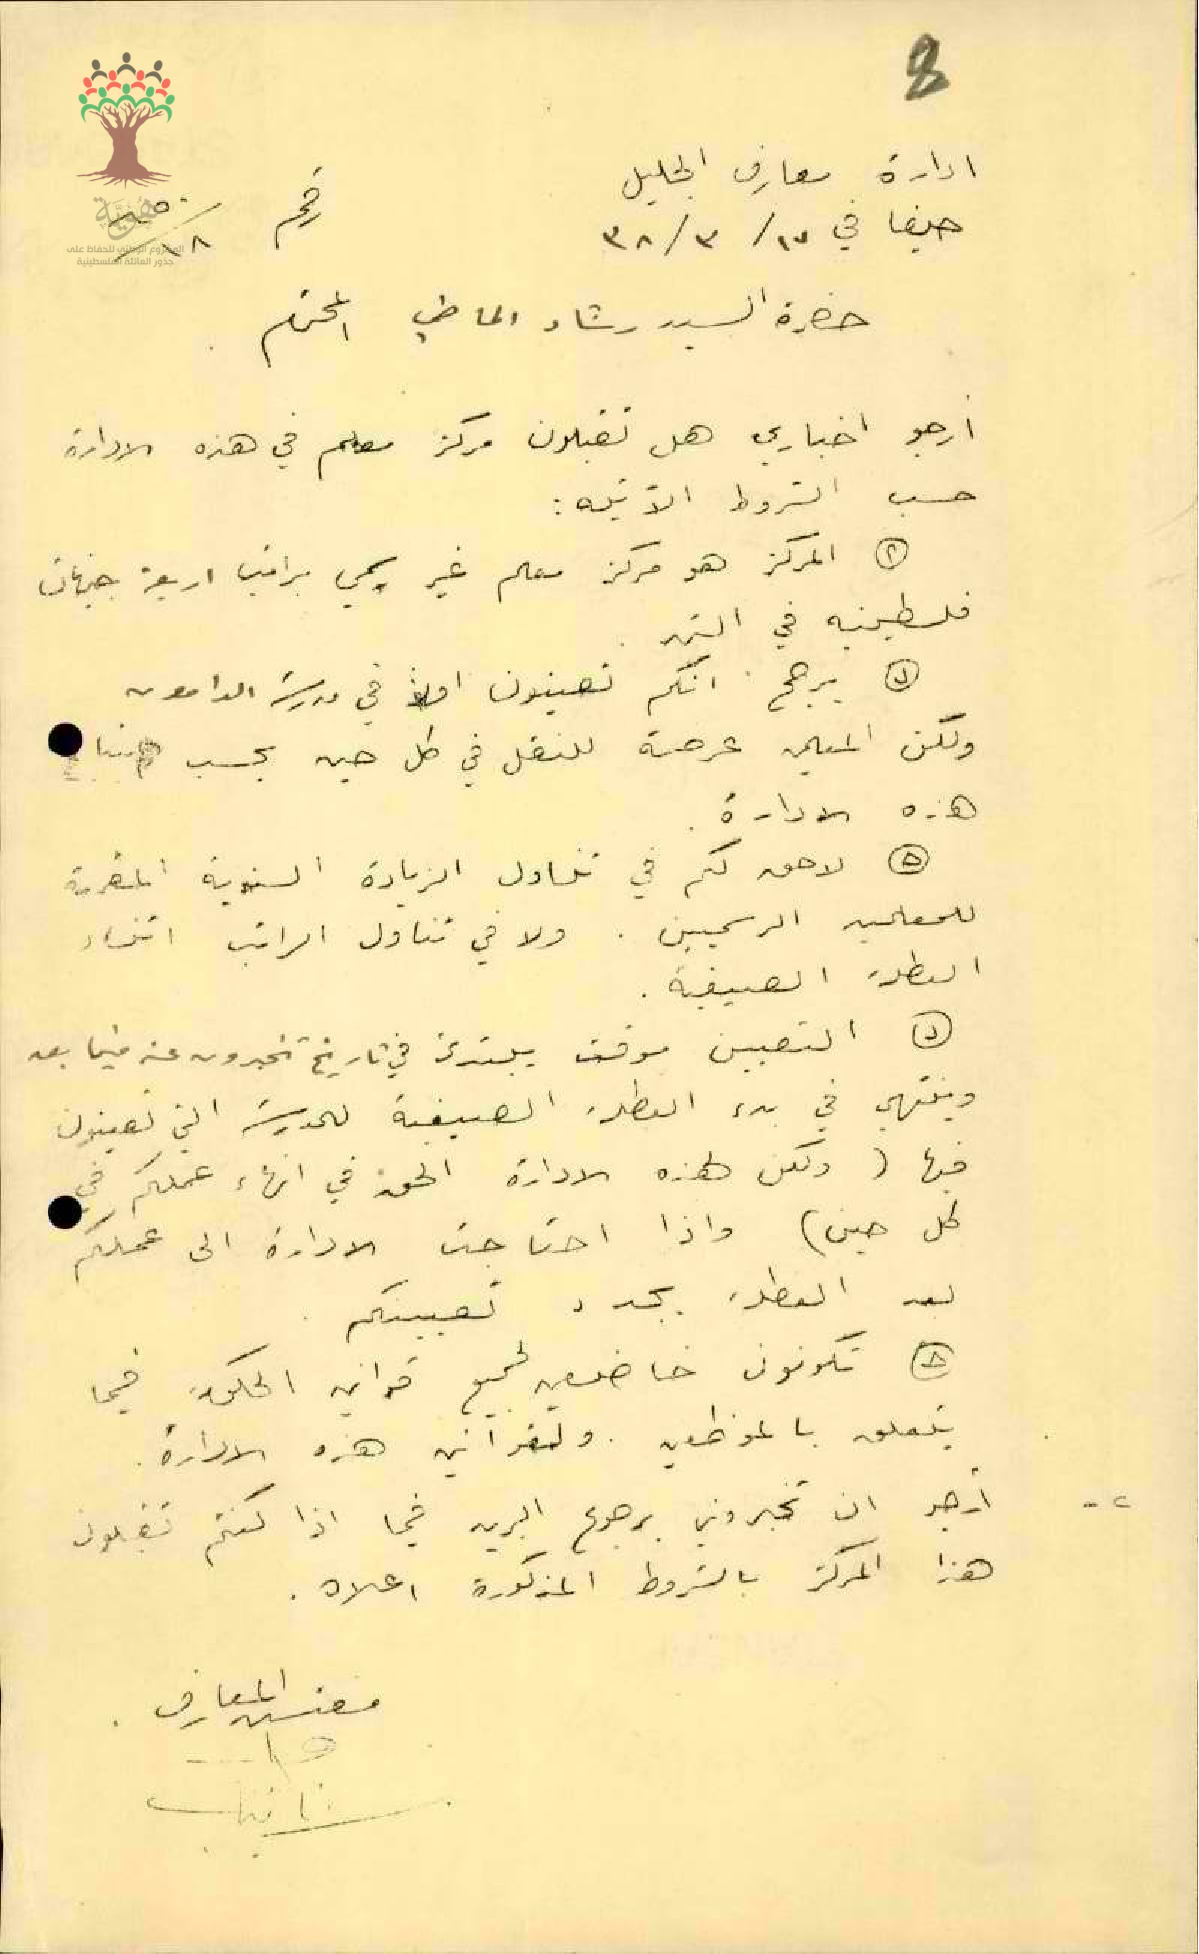 8
ادارة معارف الجليل
حيفا في ١٧/٣/٣٨ رقم ١٨
هُوِيَّة
المشروع الوطني للحفاظ على
جذور العائلة الفلسطينية
حضرة السيد رشاد الماضي المحترم
أرجو اخباري هل تقبلون مركز معلم في هذه الادارة
حسب الشروط الآتية:
المركز هو مركز معلم غير رسمي براتب اربعة جنيهات
فلسطينيه في الشهر.
يرجح انكم تعينون اولا في مدرسة الدامون
ولكن المعلمين عرضة للنقل في كل حين بحسب
هذه الادارة.
لا حق لكم في تناول الزيادة السنوية المقررة
للمعلمين الرسميين. ولا في تناول الراتب اثناء
العطلة الصيفية.
التعيين موقت يبتدئ في تاريخ تخبرون عنه فيما بعد
وينتهي في بدء العطلة الصيفية للمدرسة التي تعينون
فيها (ولكن لهذه الادارة الحق في انهاء عملكم في
كل حين) واذا احتاجت الادارة الى عملكم
بعد العطلة يجدد تعيينكم.
تكونون خاضعين لجميع قوانين الحكومة فيما
يتعلق بالموظفين. ولقوانين هذه الادارة.
٢- أرجو ان تخبروني برجوع البريد فيما اذا كنتم تقبلون
هذا المركز بالشروط المذكورة اعلاه.
مفتش المعارف